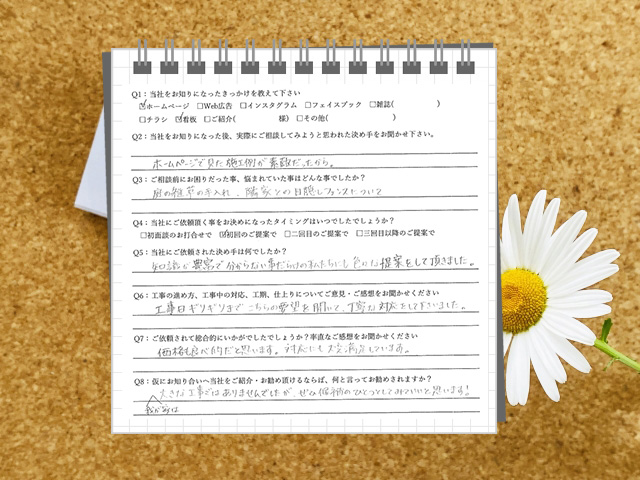 Q1：当社をお知りになったきっかけを教えて下さい
☑ホームページ □Web広告 □インスタグラム □フェイスブック □雑誌( )
□チラシ ☑看板 □ご紹介( 様) □その他( )
Q2：当社をお知りになった後、実際にご相談してみようと思われた決め手をお聞かせ下さい。
ホームページで見た施工例が素敵だったから。
Q3：ご相談前にお困りだった事、悩まれていた事はどんな事でしたか？
庭の雑草の手入れ、隣家との目隠しフェンスについて
Q4：当社にご依頼頂く事をお決めになったタイミングはいつでしたでしょうか？
□初面談のお打合せで ☑初回のご提案で □二回目のご提案で □三回目以降のご提案で
Q5：当社にご依頼された決め手は何でしたか？
知識が豊富で分からない事だらけの私たちにも色々な提案をして頂きました。
Q6：工事の進め方、工事中の対応、工期、仕上りについてご意見・ご感想をお聞かせください
工事日ギリギリまでこちらの要望を聞いて、丁寧な対応をして下さいました。
Q7：ご依頼されて総合的にいかがでしたでしょうか？率直なご感想をお聞かせください
価格も良心的だと思います。対応にも大変満足しています。
Q8：仮にお知り合いへ当社をご紹介・お勧め頂けるならば、何と言ってお勧めされますか？
大きな工事ではありませんでしたが、ぜひ候補のひとつとしてみていいと思います！
我が家は